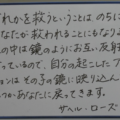 だれかを救うということは、のちに
あなたが救われることにもなりま
の中は鏡のようにお互い反射
っているので、自分の起こしたア
ションはその鏡に映り込んで
つかあなたに戻ってきます。
サヘル・ローズ